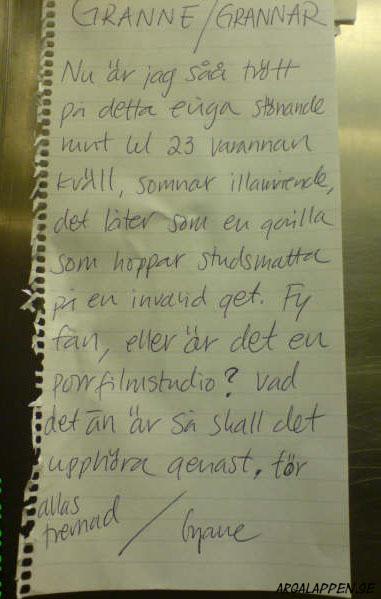 GRANNE/GRANNAR
Nu är jag såå trött
på detta eviga stönande
runt kl 23 varannan
kväll, somnar illamående,
det låter som en gorilla
som hoppar studsmatta
på en invalid get. Fy
fan, eller är det en
porrfilmstudio? Vad
det än är så skall det
upphöra genast, för
allas
trevnad /
ARGALAPPEN.SE